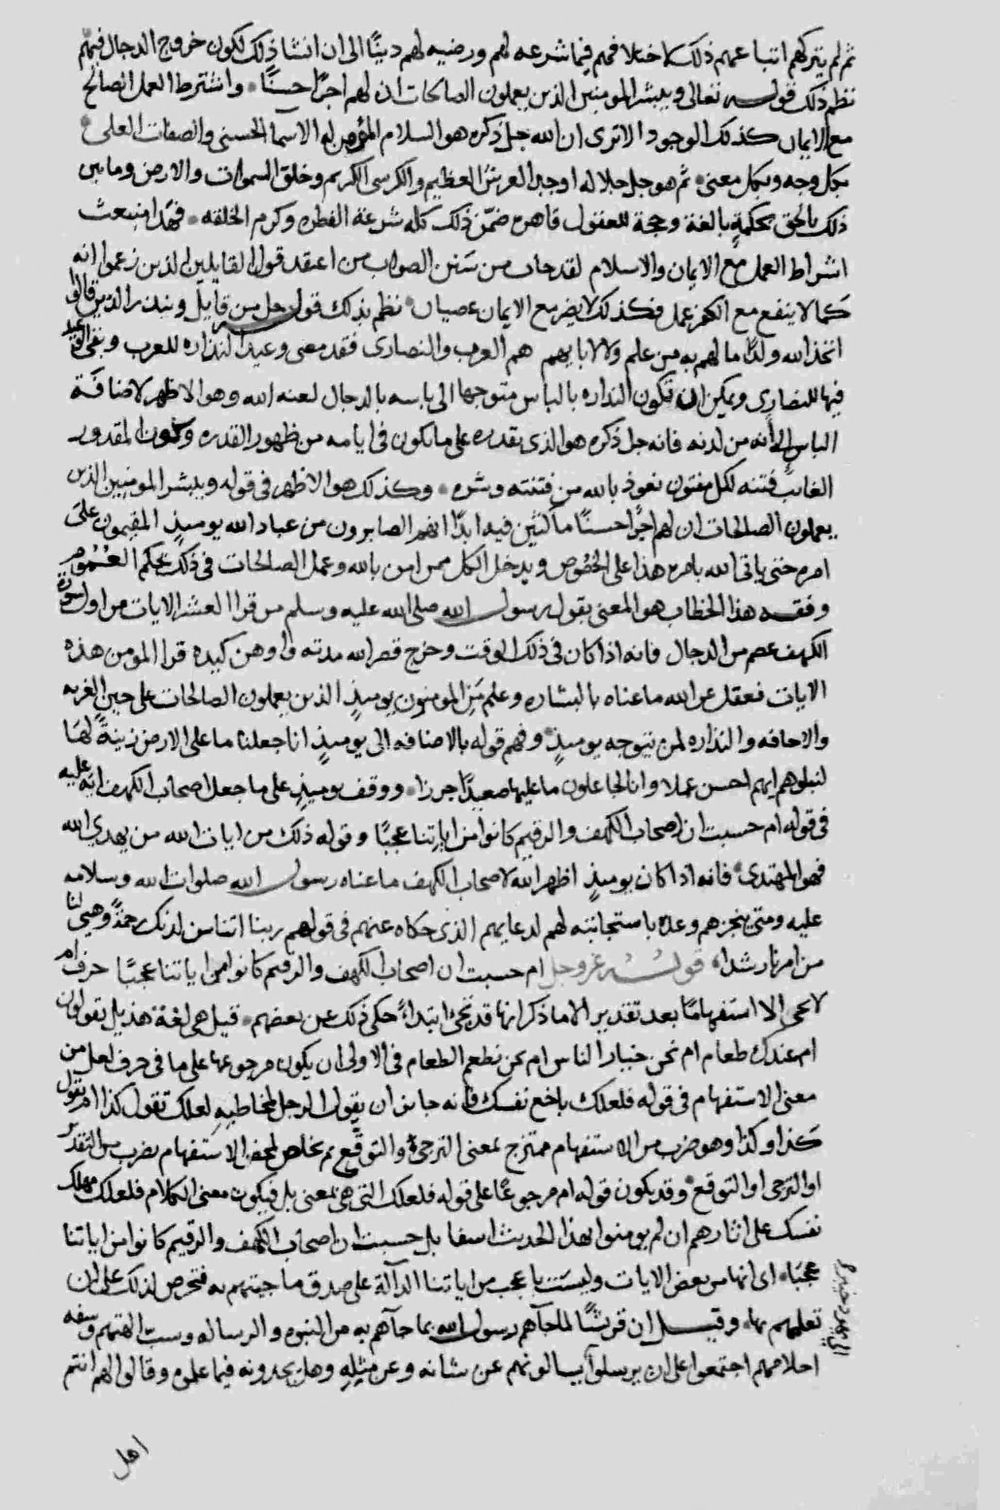 ثم لم يتركهم اتباعهم ذلك كاختلافهم فيما شرعه لهم ورضيه لهم دينًا الى ان انشا ذلك لكون خروج الدجال فيهم
نظم ذلك قوله تعالى ويبشر المومنين الذين يعملون الصالحات ان لهم اجرًا حسنًا واشترط العمل الصالح
مع الايمان كذلك الوجود الا ترى ان الله جل ذكره هو السلام المؤمن له الاسما الحسنى والصفات العلى
بكل وجه وبكل معنى ثم هو جل جلاله اوجد العرش العظيم والكرسى الكريم وخلق السموات والارض وما بين
ذلك بالحق بحكمةٍ بالغة وحجة للعقول قاهره ضمّن ذلك كله شرعة الفطره وكرم الخلقه فهذا منبعث
اشراط العمل مع الايمان والاسلام لقد حاد من سَنن الصواب من اعتقد قول القايلين الذين زعموا انه
كما لا ينفع مع الكفر عمل فكذلك لا يضر مع الايمان عصيان نظم بذلك قوله جل من قايل وينذر الذين قالوا
اتخذ الله ولدًا ما لهم به من علم ولا لابايهم هم العرب والنصارى فقد مضى وعيد النذاره للعرب وبقى الوعيد
فيها للنصارى ويمكن ان تكون النذاره بالباس متوجها الى باسه بالدجال لعنه الله وهو الاظهر لاضافة
الباس الى انه من لدنه فانه جل ذكره هو الذى يقدره على ما يكون فى ايامه من ظهور القدره وكون المقدور
الغائب فتنه لكل مفتون نعوذ بالله من فتنته وشره وكذلك هو الاظهر فى قوله ويبشر المومنين الذين
يعملون الصالحات ان لهم اجرًا حسنًا ماكثين فيه ابدًا انهم الصابرون من عباد الله يوميذٍ المقيمون على
امره حتى ياتى الله بامره هذا على الخصُوص ويدخل الكل ممن امن بالله وعمل الصالحات فى ذلك بحكم العُمُوم
وفقه هذا الخطاب هو المعنى بقول رسول الله صلى الله عليه وسلم من قرا العشر الايات من اول سورة
الكهف عصم من الدجال فانه اذا كان فى ذلك الوقت وخرج قصر الله مدته واوهن كيده قرا المومن هذه
الايات فعقل عن الله ما عناه بالبشاره وعلم مَنِ المومنون يوميذٍ الذين يعملون الصالحات على حين الغربه
والاخافه والنذاره لمن تتوجه يوميذٍ وفهم قوله بالاضافه الى يوميذٍ انا جعلنا ما على الارض زينةً لها
لنبلوهم ايهم احسن عملا وانا لجاعلون ما عليها صعيدًا جرزا ووقف يوميذٍ على ما جعل اصحاب الكهف ايه عليه
فى قوله ام حسبت ان اصحاب الكهف والرقيم كانوا من اياتنا عجبًا وقوله ذلك من ايات الله من يهدى الله
فهو المهتدى فانه اذا كان يوميذٍ اظهر الله لاصحاب الكهف ما عناه رسول الله صلوات الله وسلامه
عليه ومتى ينجزهم وعده باستجابته لهم لدعايهم الذى حكاه عنهم فى قولهم ربنا اتنا من لدنك رحمةً وهيى لنا
من امرنا رشدا قوله عز وجل ام حسبت ان اصحاب الكهف والرقيم كانوا من اياتنا عجبًا حرف ام
لا تجى الا استفهامًا بعد تقدير الا ما ذكر انها قد تجى ابتداءً حكى ذلك عن بعضهم قيل هى لغة هذيل يقولون
ام عندك طعام ام نحن خيار الناس ام نحن نطعم الطعام فى الاولى ان يكون مرجوعها على ما فى حرف لعل من
معنى الاستفهام فى قوله فلعلك باخع نفسك فانه جايز ان يقول الرجل لمخاطبِهِ لعلك تقول كذا ام تقول
كذا وكذا وهو ضرب من الاستفهام ممتزج بمعنى الترجى والتوقع ثم يخلص لمحض الاستفهام بضرب من التقدير
او الترجى او التوقع وقد يكون قوله ام مرجوعًا على قوله فلعلك التى هى بمعنى بل فيكون معنى الكلام فلعلك مهلك
نفسك على اثارهم ان لم يومنوا بهذا الحديث اسفا بل حسبت ان اصحاب الكهف والرقيم كانوا من اياتنا
عجبًا اى انها من بعض الايات وليست باعجب من اياتنا الدالة على صدق ما جيتهم به فتحرص لذلك على ان
تعلمهم بها وقيل ان قريشًا لما جآهم رسول الله بما جآهم به من النبوه والرساله وسب الهتهم وسفه
احلامهم اجتمعوا على ان يرسلوا يسالونهم عن شانه وعن مثيلِهِ وهل يجدونه فيما علموه وقالوا لهم انتم
اهل